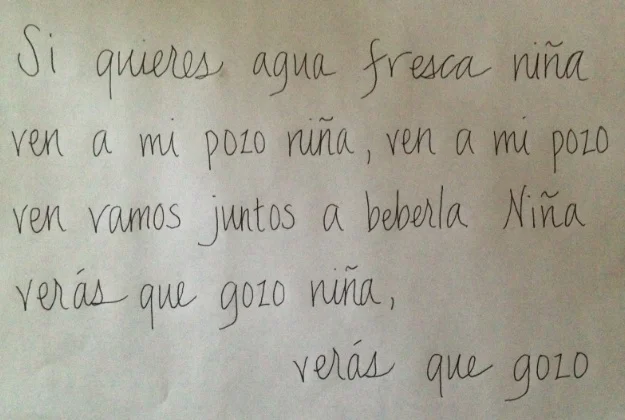 Si quieres agua fresca niña
ven a mi pozo niña, ven a mi pozo
ven vamos juntos a beberla Niña
verás que gozo niña,
verás que gozo